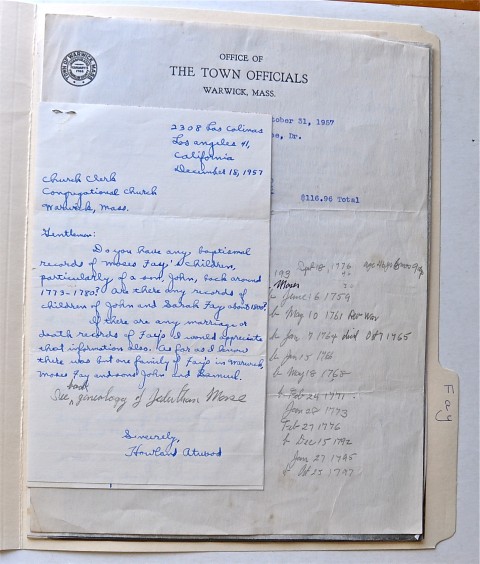 OFFICE OF
THE TOWN OFFICIALS
WARWICK, MASS.
tober 31, 1957
Dr.
$116.96 Total
2308 Las Colinas
Los Angeles 41,
California
December 18, 1957
Church Clerk
Congregational Church
Warwick, Mass.
Gentlemen:
Do you have any baptismal
records of Moses Fay's children,
particularly of a son, John, back around
1773-1780? Are there any records of
children of John and Sarah Fay about 1800?
If there are any marriage or
death records of Fays I would appreciate
that information also. As far as I know
there was but one family of Fays in Warwick,
Moses Fay and sons John and Samuel.
See back genealogy of Jeduthan Morse
Sincerely,
Howland Atwood
1776
Moses
b June 16 1759
b May 10 1761 Rev War
b Jan 7 1764 died Oct 7
b Jan 15
b May 18 1768
b Feb 24 1771
Jan 28 1773
Feb 27 1776
b Dec 15 1792
Jan 27 1795
Oct 23 1797
Fay